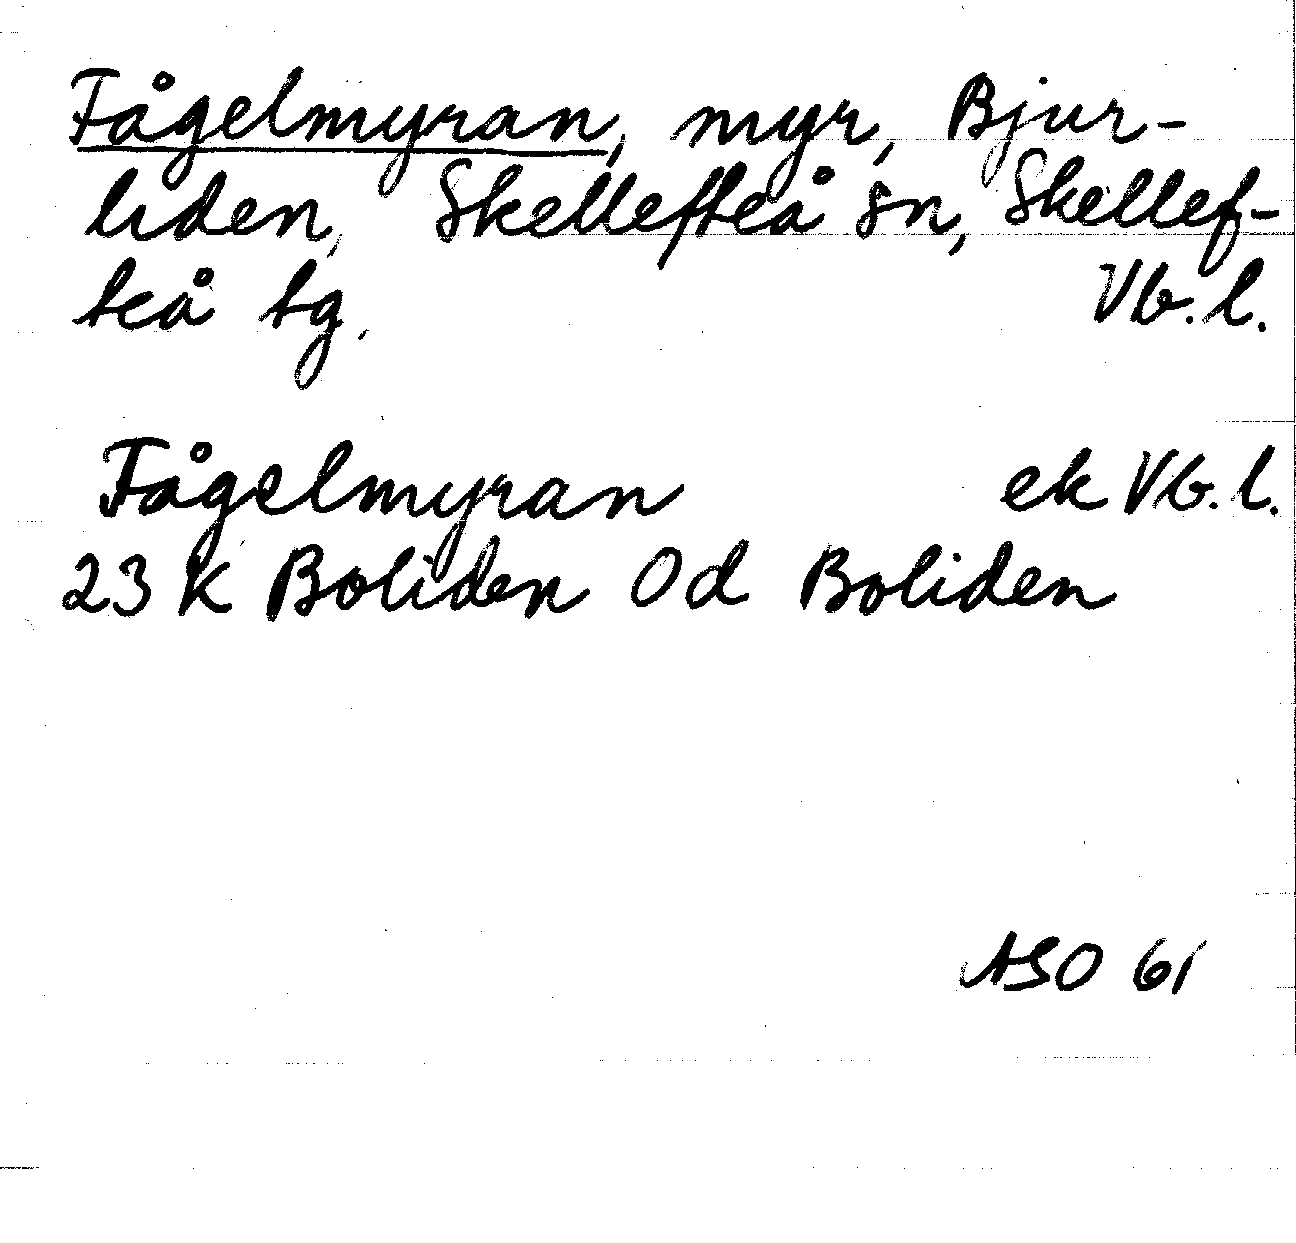 Fågelmyran, myr, Bjur-
liden, Skellefteå sn, Skellef-
teå tg, Vb. l.
Fågelmyran ek Vb. l.
23 K Boliden 0d Boliden
ASO 61